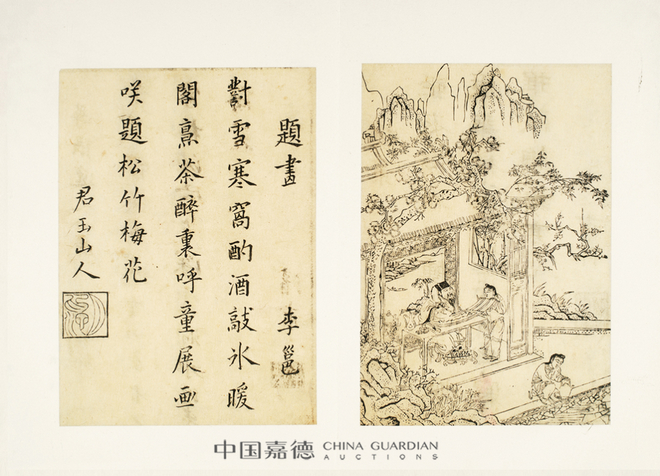 題畫
李邕
對雪寒窩酌酒敲氷暖
閣烹茶醉裏呼童展画
咲題松竹梅花
君玉山人
中国嘉德 CHINA GUARDIAN
AUCTIONS